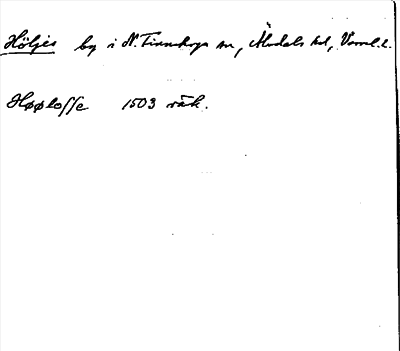 Höljes by i N. Finnskoga sn, Älvdals hd, Värml. l.
Høøloffe 1503 räk.